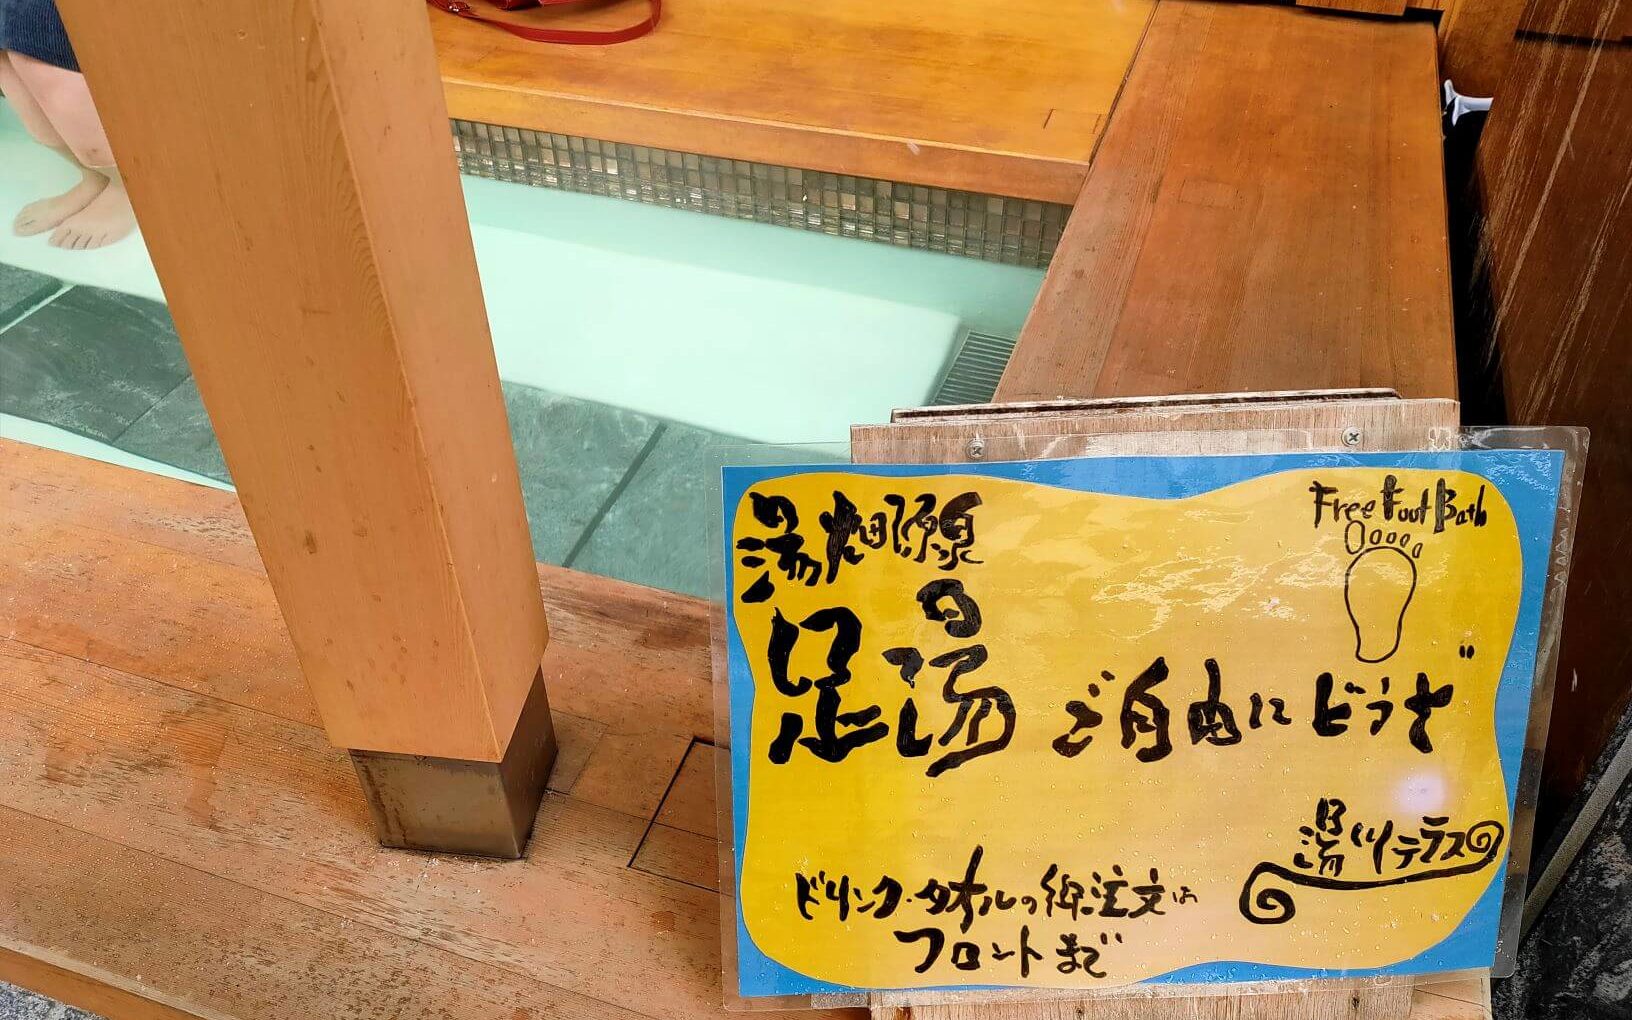 湯畑源泉
Free Foot Bath
足湯 ご自由にどうぞ
湯川テラス
ドリンク・タオルの御注文は
フロントまで